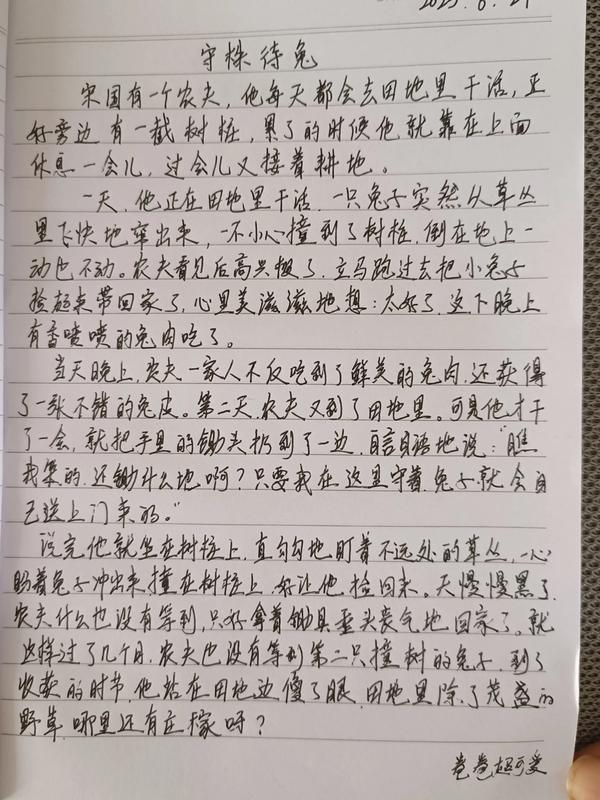 2025.6.29
守株待兔
宋国有一个农夫，他每天都会去田地里干活，正
好旁边有一截树桩，累了的时候他就靠在上面
休息一会儿，过会儿又接着耕地。
一天，他正在田地里干活，一只兔子突然从草丛
里飞快地窜出来，一不小心撞到了树桩，倒在地上一
动也不动。农夫看见后高兴极了，立马跑过去把小兔子
捡起来带回家了，心里美滋滋地想：太好了，这下晚上
有香喷喷的兔肉吃了。
当天晚上，农夫一家人不仅吃到了鲜美的兔肉，还获得
了一张不错的兔皮。第二天，农夫又到了田地里。可是他才干
了一会，就把手里的锄头扔到了一边，自言自语地说：“瞧
我笨的，还锄什么地啊？只要我在这里守着，兔子就会自
己送上门来的。”
说完他就坐在树桩上，直勾勾地盯着不远处的草丛，一心
盼着兔子冲出来撞在树桩上，好让他捡回来。天慢慢黑了，
农夫什么也没有等到，只好拿着锄具垂头丧气地回家了。就
这样过了几个月，农夫也没有等到第二只撞树的兔子，到了
收获的时节，他站在田地边傻了眼，田地里除了茂盛的
野草，哪里还有庄稼呀？
卷卷超可爱